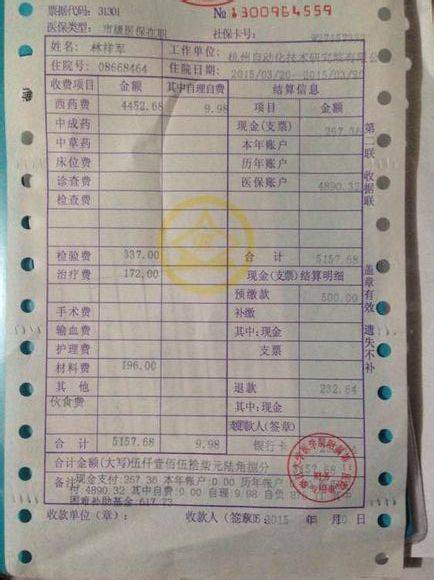 票据代码: 31301 № 1300964559
医保类型: 市级医保在职 社保卡号:
姓名 林祥军 工作单位 杭州自动化技术研究院有限公
住院号: 08668464 住院日期: 2015/03/20--2015/03/
收费项目 金额 其中自理自费 结算信息
西药费 4452.68 9.98 项目 金额
中成药 现金(支票) 267.36
中草药 本年账户
床位费 历年账户
诊查费 医保账户 4890.32
检查费
检验费 337.00 合计 5157.68
治疗费 172.00 现金(支票)结算明细
预缴款 500.00
手术费 补缴
输血费 其中:现金
护理费 支票
材料费 196.00
其他 退款 232.64
伙食费 其中:现金
(签章)
合计 5157.68 9.98 银行卡
合计金额(大写)伍仟壹佰伍拾柒元陆角捌分 5157.68
备注 现金支付:267.36 本年账户:0.00 历年账户
付 4890.32 其中自费:0.00 自理:9.98 自负
困难补助基金:617.23
收款单位(章): 收款人(签章) 2015 年 月 日
第二联 收据联 盖章有效 遗失不补